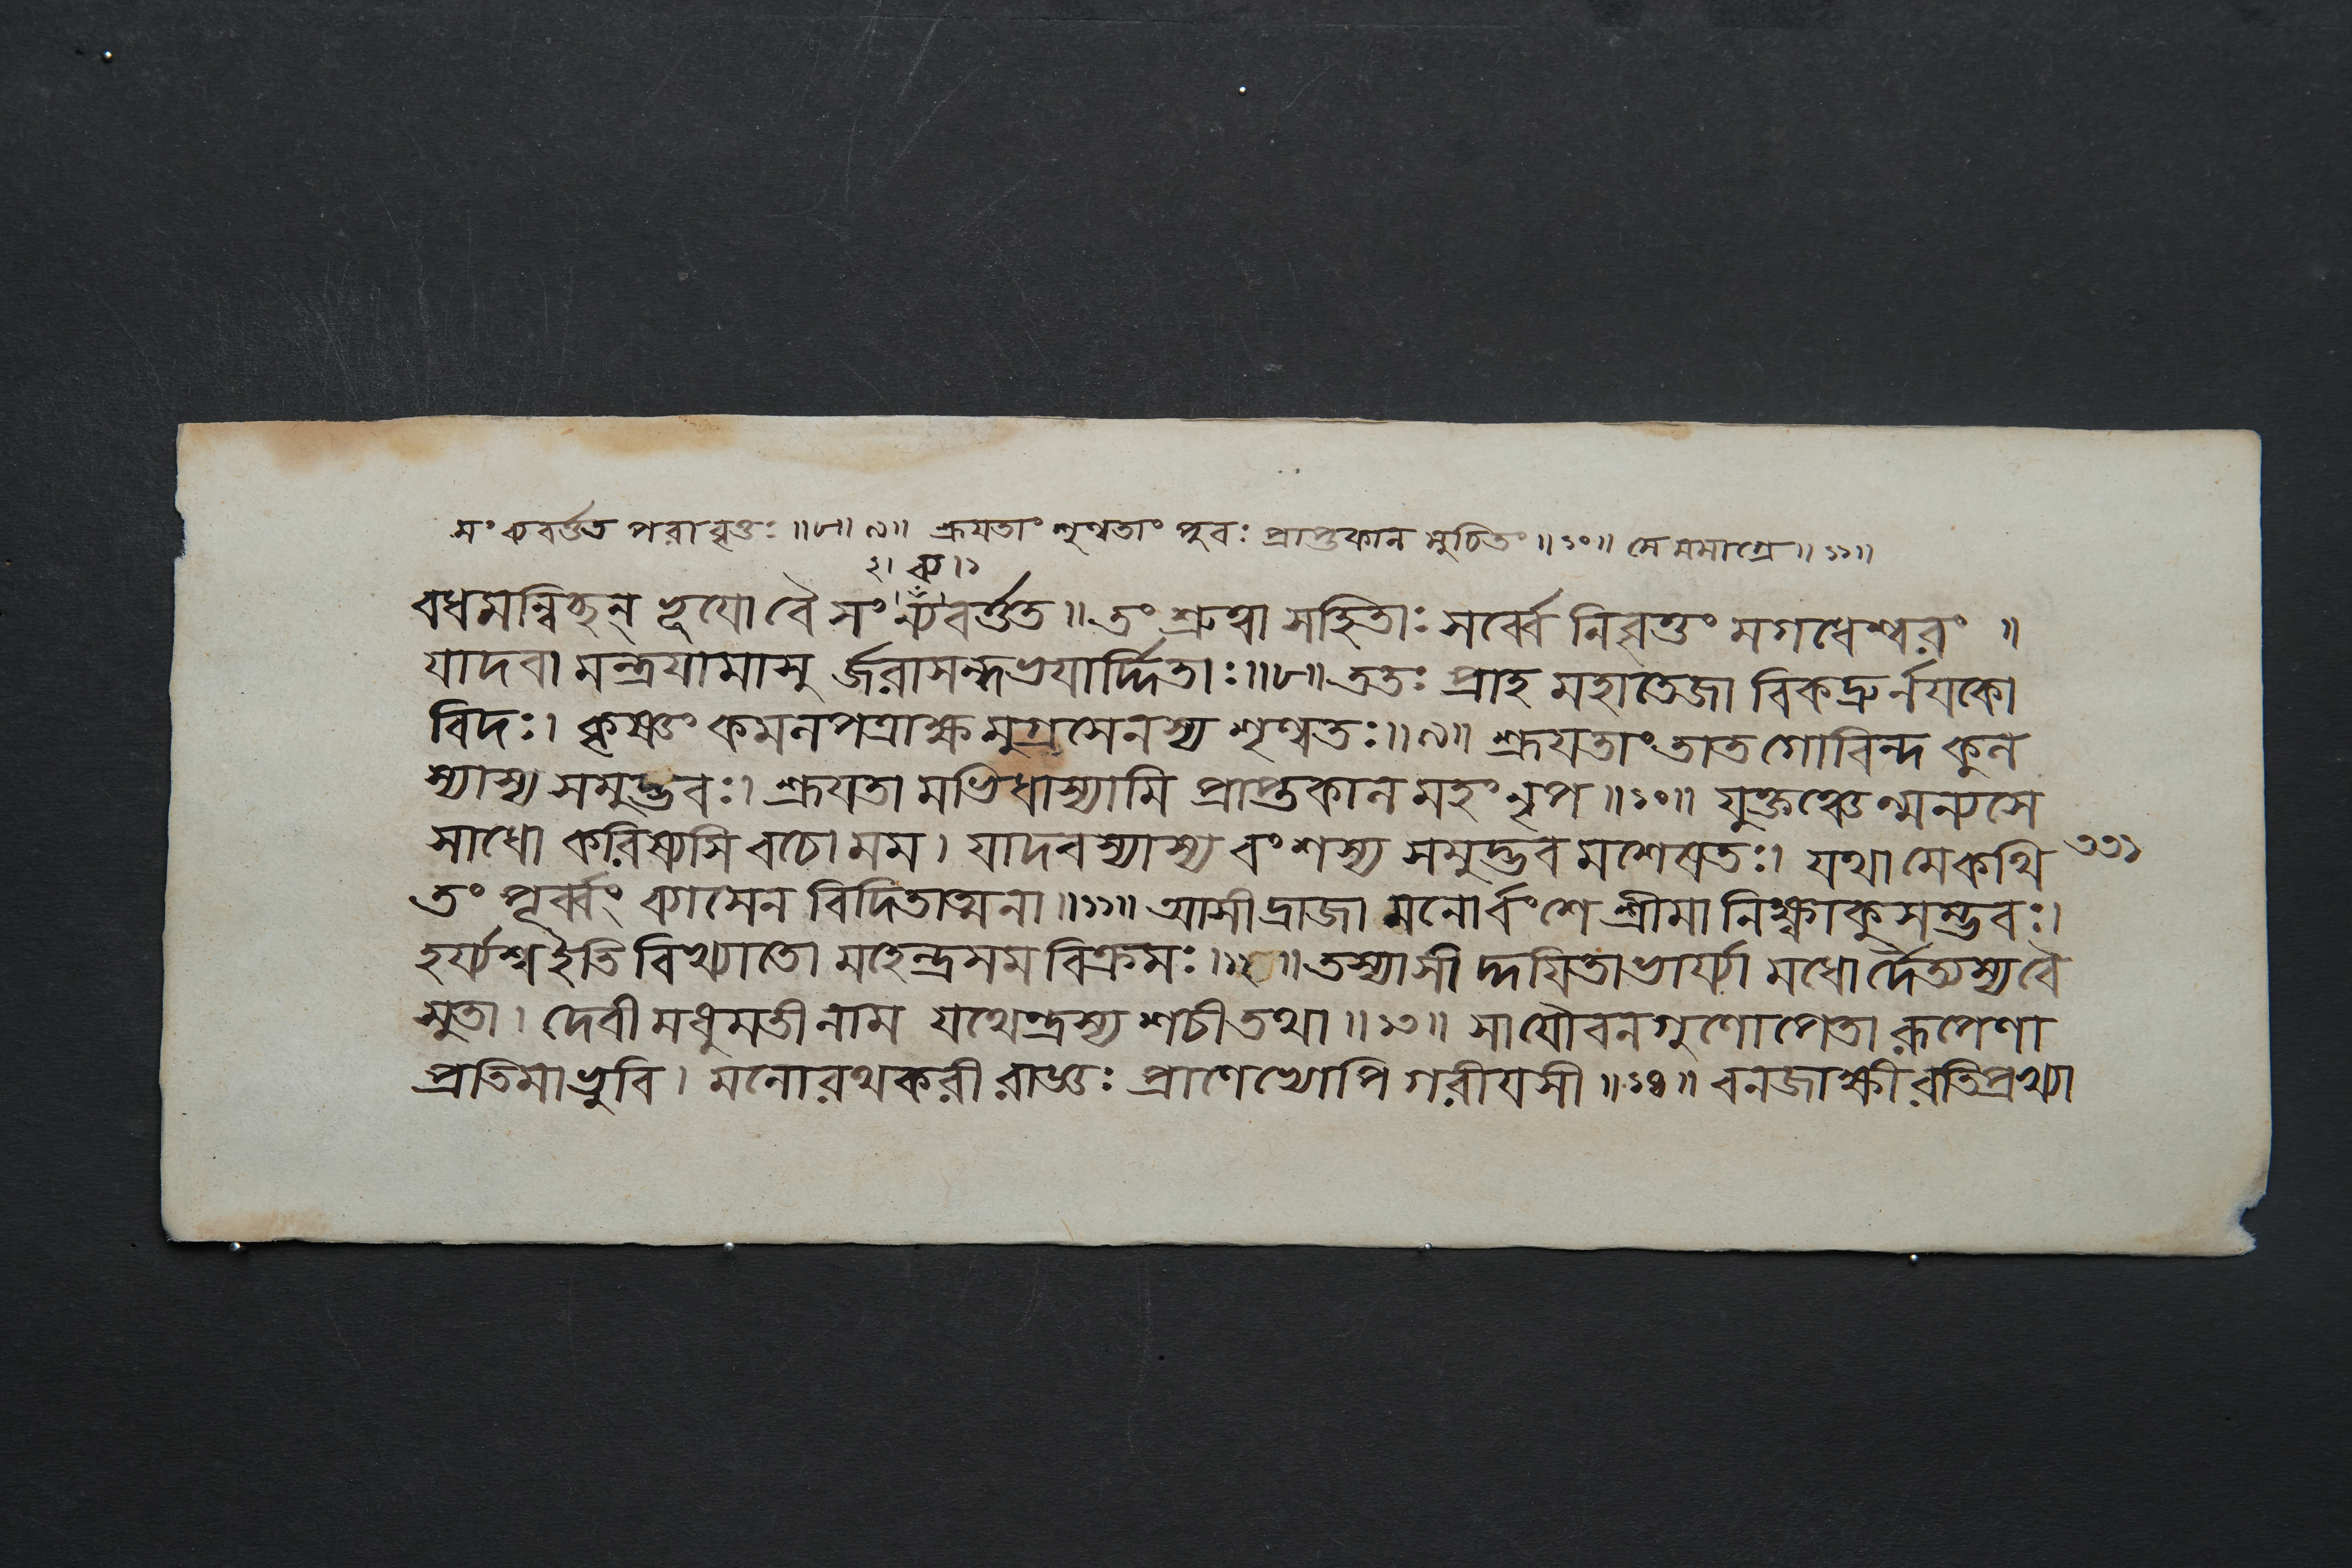 সংন্যবর্ত্তত পরাবৃত্তঃ ॥৮॥ ৯॥ শ্রূযতাং শৃণ্বতাং পুবঃ প্রাপ্তকাল মুচিতং ॥১০॥ মে মমাগ্রে ॥ ১১॥
২। ন্য ।১
বধমন্বিচ্ছন্ ভূযো বৈ সং ন্যবর্ত্তত ॥ তং শ্রুত্বা সহিতাঃ সর্ব্বে নিবৃত্তং মগধেশ্বরং ॥
যাদবা মন্ত্রযামাসু র্জরাসন্ধভযার্দ্দিতাঃ ॥৮॥ ততঃ প্রাহ মহাতেজা বিকদ্রুর্নযকো
বিদঃ। কৃষ্ণং কমলপত্রাক্ষ মুগ্রসেনস্য শৃণ্বতঃ ॥৯॥ শ্রূযতাং তাত গোবিন্দ কুল
স্যাস্য সমুদ্ভবঃ। শ্রূযতা মভিধাস্যামি প্রাপ্তকাল মহং নৃপ ॥১০॥ যুক্তঞ্চেন্মন্যসে
সাধো করিষ্যসি বচো মম। যাদবস্যাস্য বংশস্য সমুদ্ভব মশেষতঃ। যথা মে কথি ৩৩১
তং পূর্ব্বং ব্যাসেন বিদিতাত্মনা ॥১১॥ আসীদ্রাজা মনোর্বংশে শ্রীমা নিক্ষ্বাকুসম্ভবঃ।
হর্য্যশ্ব ইতি বিখ্যাতো মহেন্দ্রসম বিক্রমঃ ॥১২॥ তস্যাসী দ্দযিতা ভার্য্যা মধোর্দৈত্যস্য বৈ
সুতা। দেবী মধুমতী নাম যথেন্দ্রস্য শচী তথা ॥১৩॥ সা যৌবনগুণোপেতা রূপেণা
প্রতিমা ভুবি। মনোরথকরী রাজ্ঞঃ প্রাণেভ্যোপি গরীযসী ॥১৪॥ বনজাক্ষী রতিপ্রখ্যা